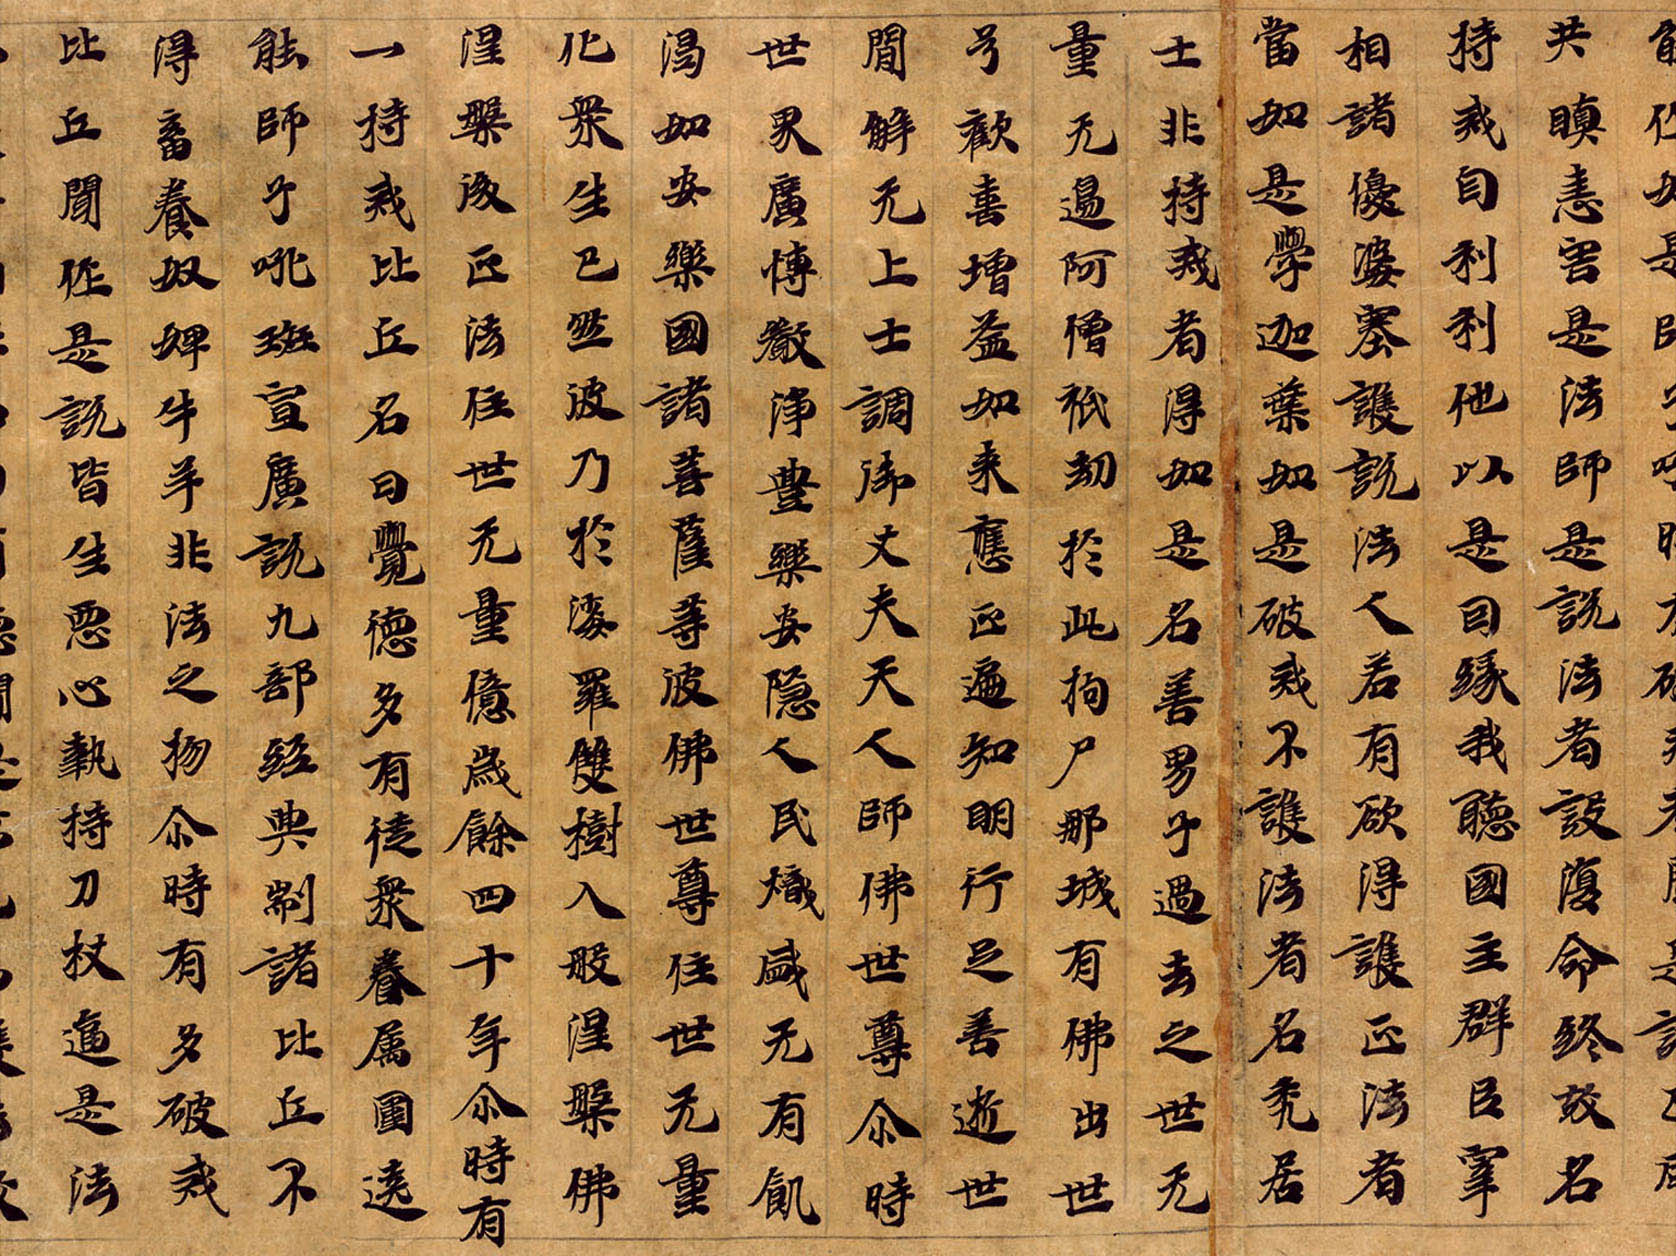 共瞋恚害是法師是說法者設復命終故名
持戒自利利他以是因緣我聽國主群臣宰
相諸優婆塞護說法人若有欲得護正法者
當如是學迦葉如是破戒不護法者名禿居
士非持戒者得如是名善男子過去之世无
量无邊阿僧祇劫於此拘尸那城有佛出世
号歡喜增益如來應正遍知明行足善逝世
間解无上士調御丈夫天人師佛世尊尒時
世界廣博嚴淨豐樂安隱人民熾盛无有飢
渴如安樂國諸菩薩等彼佛世尊住世无量
化眾生已然後乃於娑羅雙樹入般涅槃佛
涅槃後正法住世无量億歲餘四十年尒時有
一持戒比丘名曰覺德多有徒眾眷属圍遶
能師子吼班宣廣說九部經典制諸比丘不
得畜養奴婢牛羊非法之物尒時有多破戒
比丘聞作是說皆生惡心執持刀杖逼是法